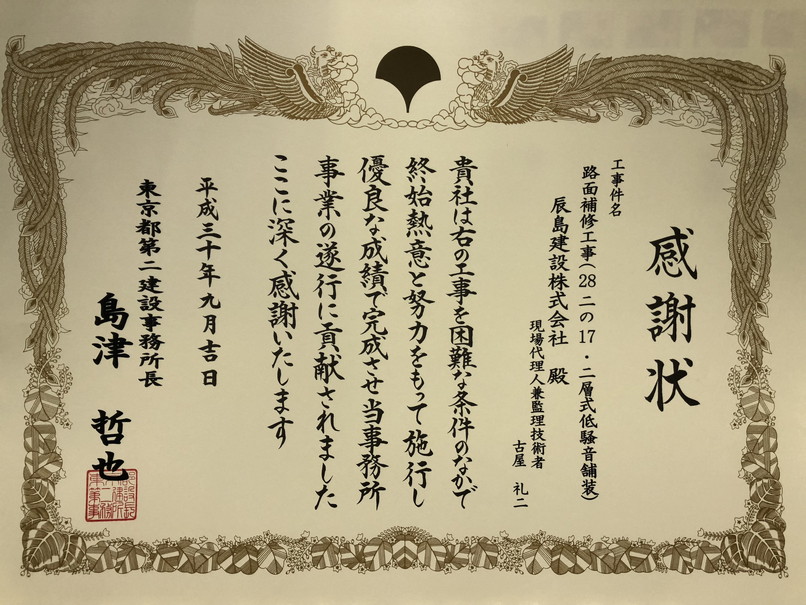 感謝状
工事件名
路面補修工事(28二の17・二層式低騒音舗装)
辰島建設株式会社 殿
現場代理人兼監理技術者
古屋 礼二
貴社は右の工事を困難な条件のなかで
終始熱意と努力をもって施行し
優良な成績で完成させ当事務所
事業の遂行に貢献されました
ここに深く感謝いたします
平成三十年九月吉日
東京都第二建設事務所長
島津 哲也